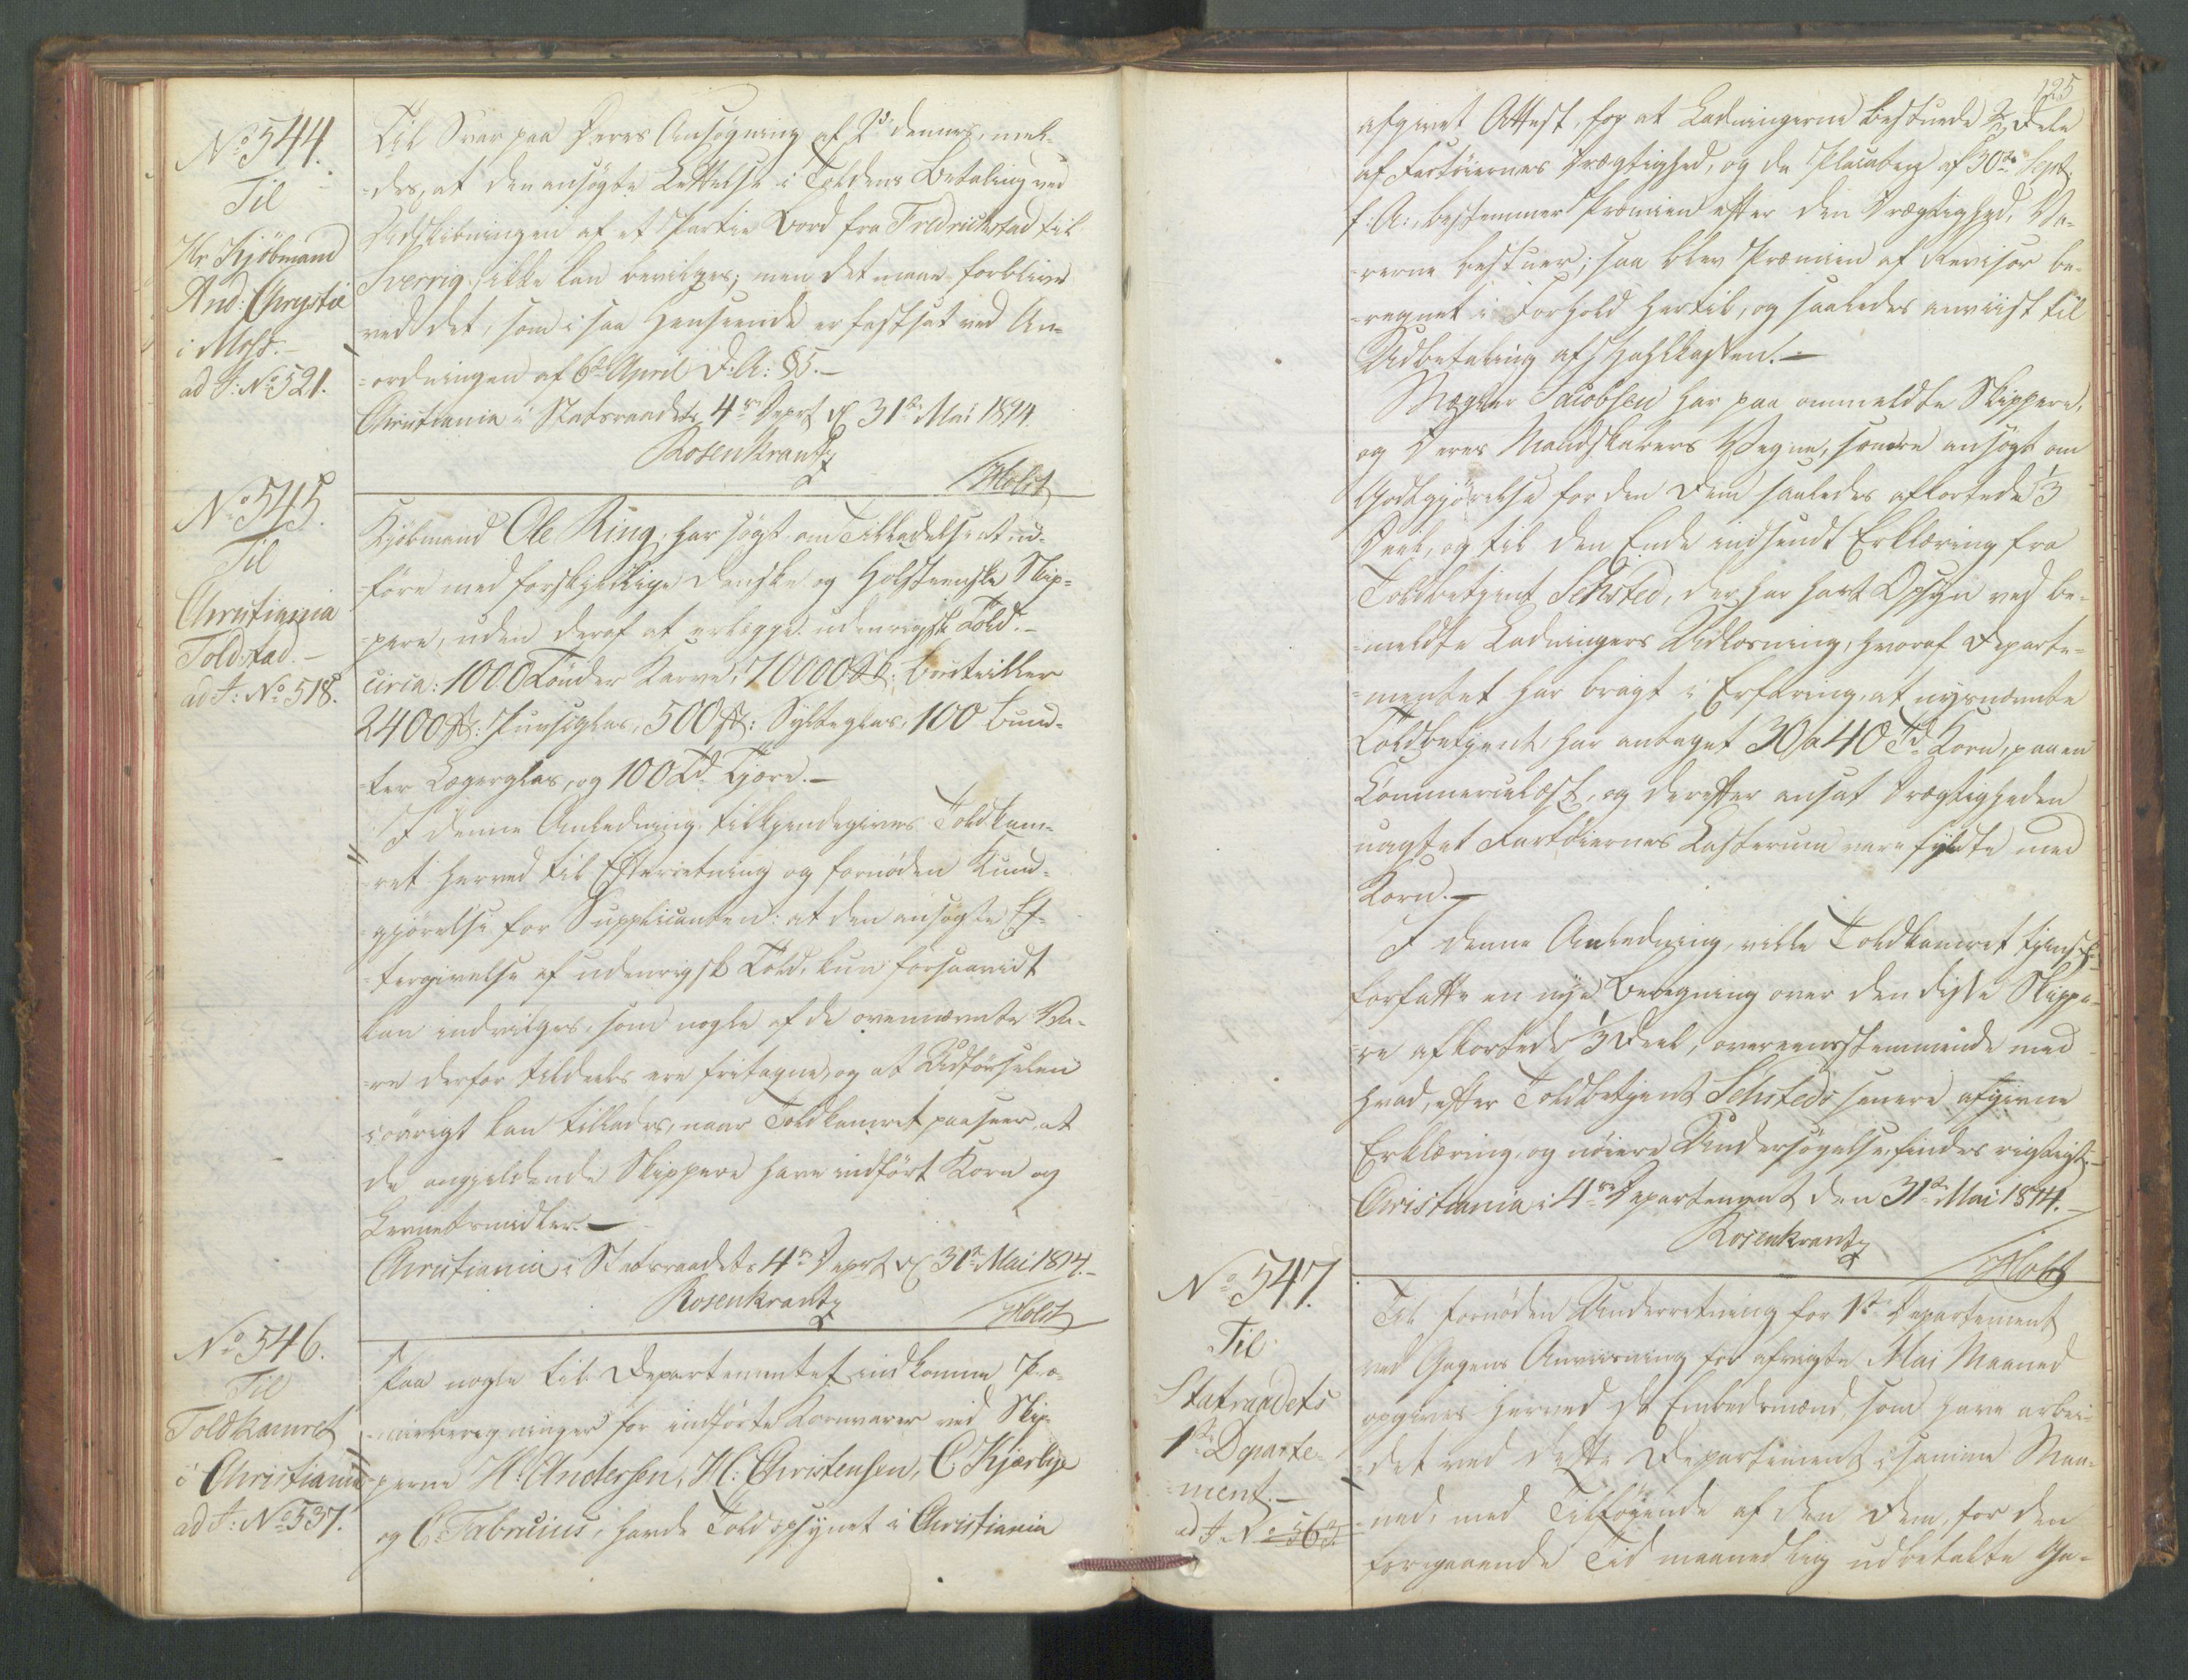 No 544.
Til
Hr Kjöbmand
And: Chrystie
i Moss.-
ad J: No 521.
Til Svar paa Deres Ansøgning af 2d dennes, mel-
des, at den ansøgte Lettelse i Toldens Betaling ved
Udskibningen af et Partie Bord fra Fredrichstad til
Sverrig, ikke kan bevilges; men det maae forblive
ved det, som i saa Henseende er fastsat ved An-
ordningen af 6te April d: A: §5.-
Christiania i Statsraadets 4de Depart d 31te Mai 1814.
Rosenkrantz
/Holst
No 545.
Til
Christiania
Toldstad.-
ad J: No 518.
Kjøbmand Ole Ring, har søgt om Tilladelse at ud-
føre med forskjellige danske og Holsteenske Skip-
pere, uden deraf at erlægge udenrigsk Told.-
circa: 1000 Tønder Tarve, 70000 Bouteiller
2400 : Puncheglas, 500 : Sylteglas, 100 Bund-
ter Lægerglas, og 100 Td Tjære.-
I denne Anledning tilkjendegives Toldkam-
ret herved til Efterretning og fornøden Kund-
gjørelse for Supplicanten: at den ansøgte Ef-
tergivelse af udenrigsk Told, kun forsaavidt
kan indvilges, som nogle af de ovennævnte Va-
re derfor tildeels ere fritagne, og at Udførselen
iøvrigt kan tillades, naar Toldkamret paaseer, at
de angjeldende Skippere have indført Korn og
Levnetsmidler.-
Christiania i Statsraadets 4de Depart d 31te Mai 1814.-
Rosenkrantz
/Holst
No 546.
Til
Toldkamret
i Christiania
ad J: No 537.
Paa nogle til Departementet indkomne Præ-
mieberegninger for indførte Kornvarer ved Skip-
perne H: Andersen, H: Christensen, C Kjærbye
og C: Fabricius, havde Toldopsynet i Christiania
125
afgivet Attest, for at Ladningerne bestuede 2/3 Dele
af Fartøiernes Drægtighed, og da Placaten af 30te Sept:
f: A:, bestemmer Præmien efter den Drægtighed, Va-
rerne bestuer; saa blev Præmien af Revisor be-
regnet i Forhold hertil, og saaledes anviist til
Udbetaling af Zahlkassen.-
Mægler Jacobsen har paa ommeldte Skippere,
og Deres Mandskabers Vegne, senere ansøgt om
Godtgjørelse for den dem saaledes afkortede 1/3
Deel, og til den Ende indsendt Erklæring fra
Toldbetjent Sehsted, der har havt Opsyn ved be-
meldte Ladningers Udlosning, hvoraf Departe-
mentet har bragt i Erfaring, at nysnævnte
Toldbetjent har antaget 30 a 40 Td Korn, paa en
Commercelæst, og derefter ansat Drægtigheden
uagtet Fartøiernes Lasterum vare fyldte med
Korn.-
I denne Anledning, ville Toldkamret tjenstl:
forfatte en nye Beregning over den disse Skippe-
re afkortede 1/3 Deel, overeensstemmende med
hvad, efter Toldbetjent Sehsteds senere afgivne
Erklæring, og nøiere Undersøgelse, findes rigtigt.-
Christiania i 4de Departement den 31te Mai 1814.-
Rosenkrantz
/Holst
No 547.
Til
Statsraadets
1ste Departe-
ment.-
Til fornøden Underretning for 1ste Departement
ved Gagens Anviisning for afvigte Mai Maaned
opgives herved de Embedsmænd, som have arbei-
det ved dette Departement i samme Maa-
ned, med Tilføiende af den dem, for den
foregaaende Tid maanedlig udbetalte Ga-